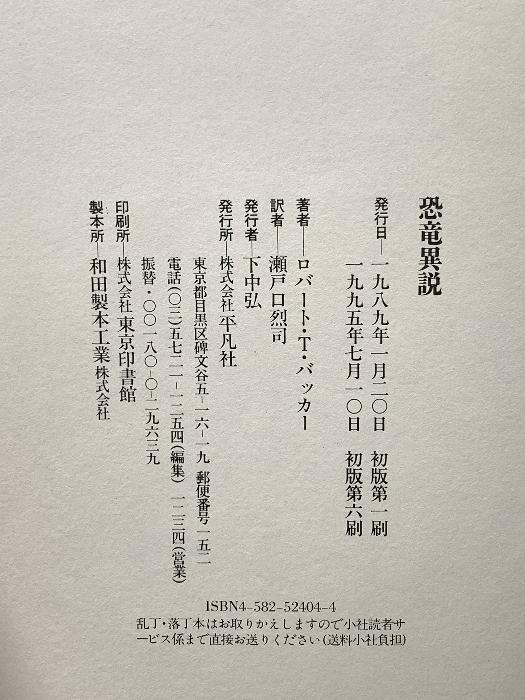 恐竜異説
発行日―一九八九年一月二〇日　初版第一刷
一九九五年七月一〇日　初版第六刷
著者―ロバート・T・バッカー
訳者―瀬戸口烈司
発行者―下中弘
発行所―株式会社平凡社
東京都目黒区碑文谷五-一六-一九 郵便番号一五二
電話(〇三)五七二一-一二五四(編集) 一二三四(営業)
振替・〇〇一八〇-〇-二九六三九
印刷所―株式会社東京印書館
製本所―和田製本工業株式会社
ISBN4-582-52404-4
乱丁・落丁本はお取りかえしますので小社読者サ
ービス係まで直接お送りください(送料小社負担)